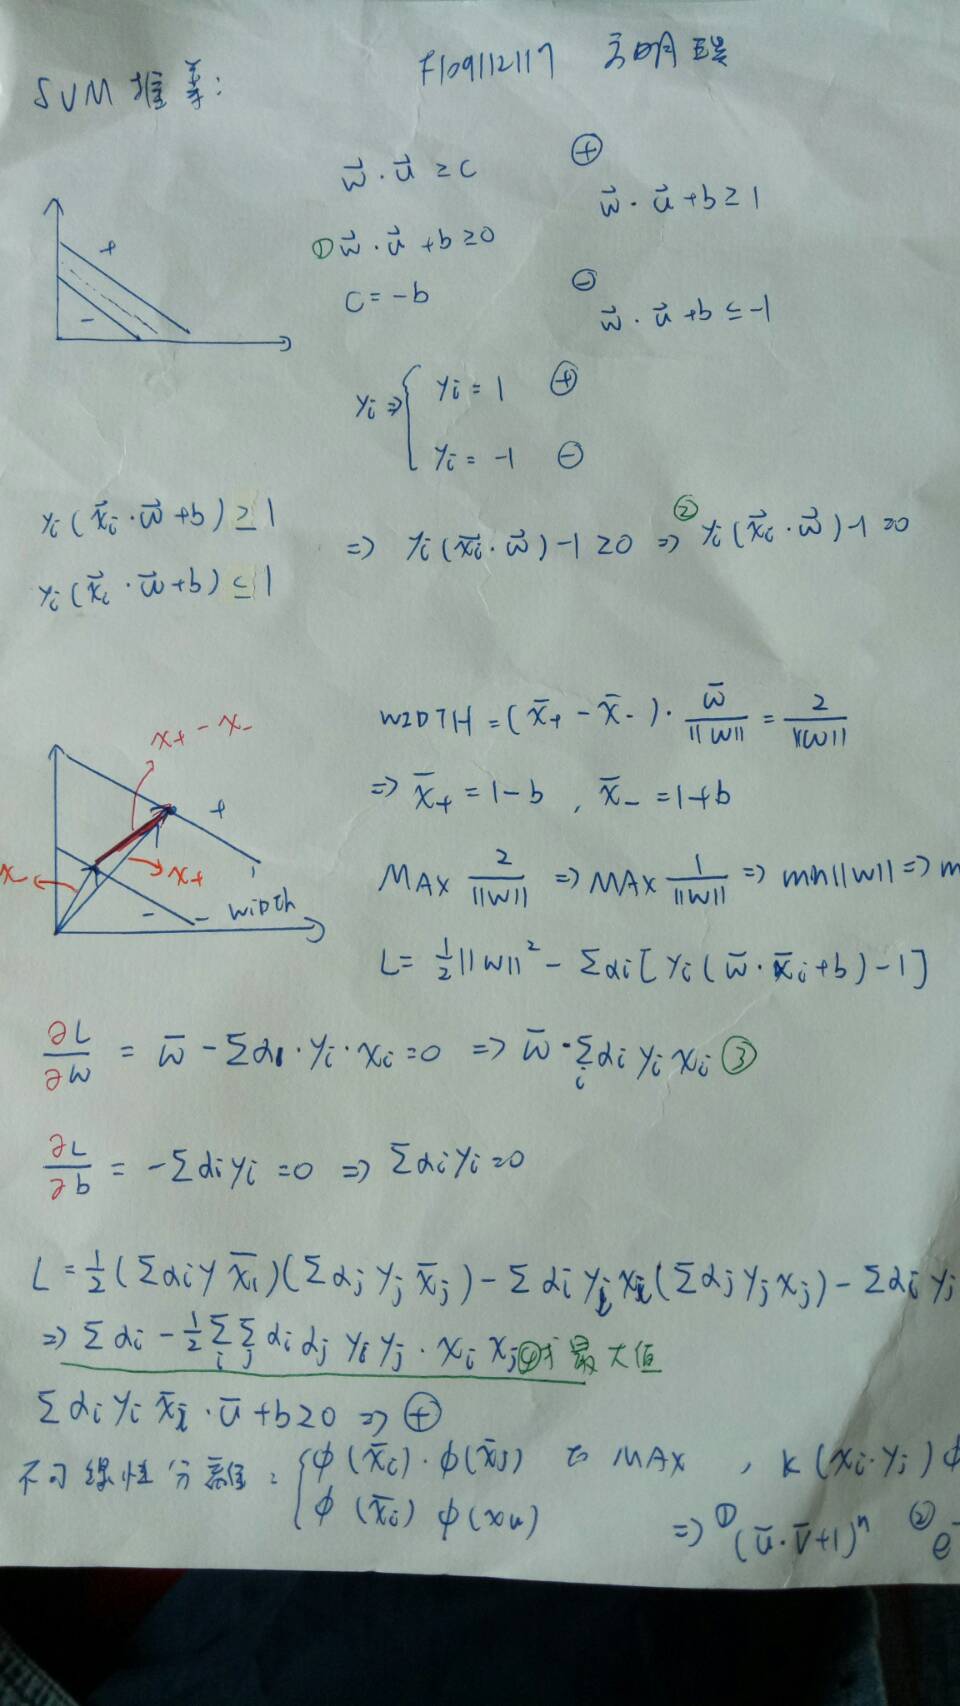 SVM 推導: F109112117
w⃗ · u⃗ ≥ c ⊕
w⃗ · u⃗ + b ≥ 1
① w⃗ · u⃗ + b ≥ 0
c = -b ⊖
w⃗ · u⃗ + b ≤ -1
+
-
yi ⇒ { yi = 1 ⊕
yi = -1 ⊖
yi(x⃗i · w⃗ + b) ≥ 1
yi(x⃗i · w⃗ + b) ≤ 1
⇒ yi(x⃗i · w⃗) - 1 ≥ 0 ⇒ ② yi(x⃗i · w⃗) - 1 ≥ 0
x+ - x-
+
x+
x-
- - WIDTH
WIDTH = (x̄+ - x̄-) · w̄/||w|| = 2/||w||
⇒ x̄+ = 1 - b , x̄- = 1 + b
MAX 2/||w|| ⇒ MAX 1/||w|| ⇒ min||w|| ⇒ m
L = ½||w||² - Σαi[yi(w̄ · x̄i + b) - 1]
∂L/∂w = w̄ - Σαi · yi · xi = 0 ⇒ w̄ - Σi αi yi xi ③
∂L/∂b = -Σαi yi = 0 ⇒ Σαi yi = 0
L = ½(Σαi y x̄i)(Σαj yj x̄j) - Σαi yi xi(Σαj yj xj) - Σαi yi
⇒ Σαi - ½ Σi Σj αi αj yi yj · xi xj ④ 最大值
Σαi yi x̄i · ū + b ≥ 0 ⇒ ⊕
不可線性分離: { φ(x̄i) · φ(x̄j) MAX , k(xi · yj) φ
φ(x̄i) φ(xu) ⇒ ① (ū · v̄ + 1)ⁿ ② e⁻